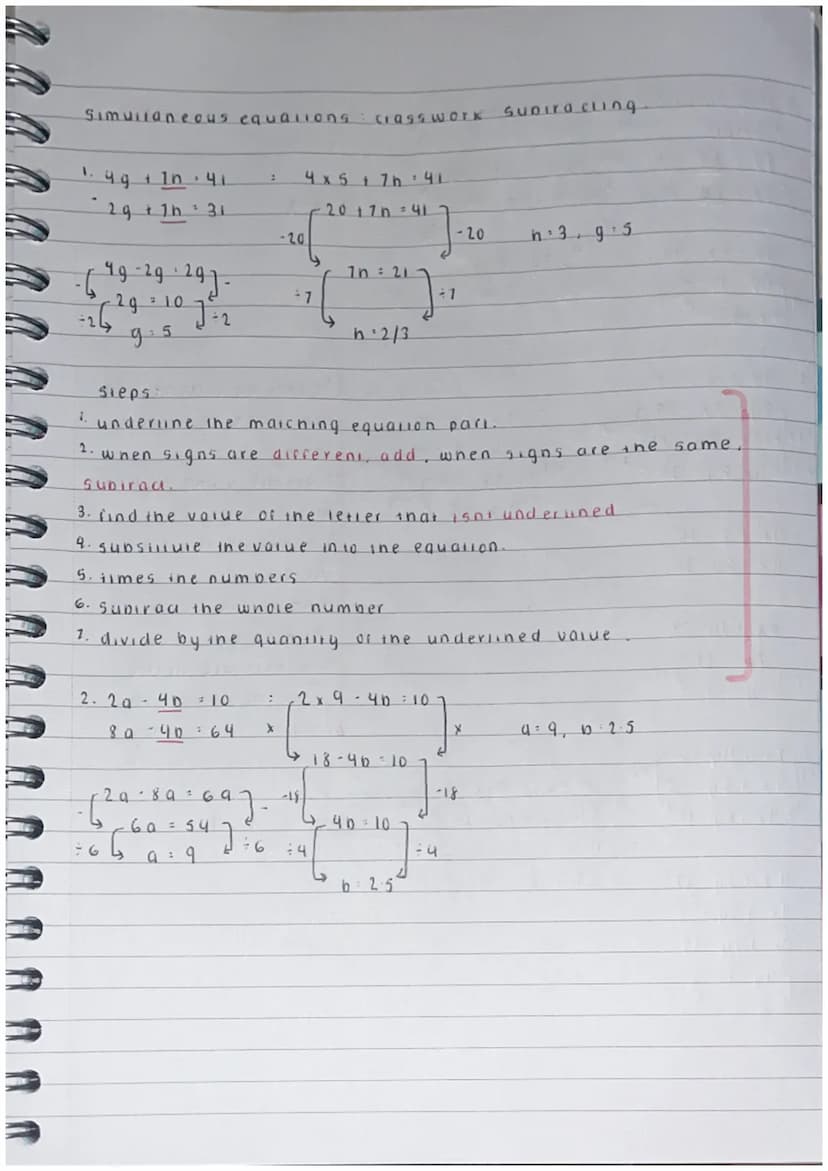 simultaneous equations: classwork subtracting.
1. 4g + 7h = 41 : 4 x 5 + 7h = 41
- 2g + 7h = 31
-20 20 + 7h = 41 -20 h = 3, g = 5
- 4g - 2g = 2g -
÷7 7h = 21 ÷7
÷2 2g = 10 ÷2
g = 5
h = 2/3
steps:
1. underline the matching equation part.
2. when signs are different, add, when signs are the same,
subtract.
3. find the value of the letter that isnt underlined
4. substitute the value into the equation.
5. times the numbers
6. subtract the whole number
7. divide by the quantity of the underlined value.
2. 2a - 4b = 10 : 2 x 9 - 4b = 10
8a - 4b = 64 x x a = 9, b = 2.5
18 - 4b = 10
- 2a - 8a = 6a - -18 -18
6a = 54 4b = 10
÷6 a = 9 ÷6 ÷4 ÷4
b = 2.5